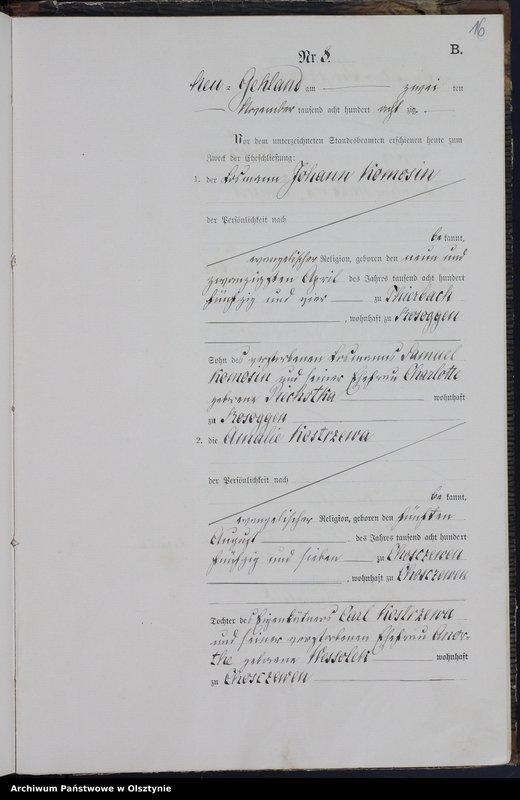 16
Nr. 8.
B.
Neu-Gehland am zwei ten
November tausend acht hundert acht zig.
Vor dem unterzeichneten Standesbeamten erschienen heute zum
Zweck der Eheschließung:
1. der Losmann Johann Komosin
der Persönlichkeit nach
be kannt,
evangelischer Religion, geboren den neun und
zwanzigsten April des Jahres tausend acht hundert
fünfzig und vier zu Thierbach
, wohnhaft zu Kosoggen
Sohn des verstorbenen Losmanns Samuel
Komosin und seiner Ehefrau Charlotte
geborene wohnhaft
zu Kosoggen
2. die Amalie Kostrzewa
der Persönlichkeit nach
be kannt,
evangelischer Religion, geboren den fünften
August des Jahres tausend acht hundert
fünfzig und sieben zu Choszczewen
, wohnhaft zu Choszczewen
Tochter des Eigenkätners Carl Kostrzewa
und seiner verstorbenen Ehefrau Enor-
the geborene Wessolek wohnhaft
zu Choszczewen
Archiwum Państwowe w Olsztynie